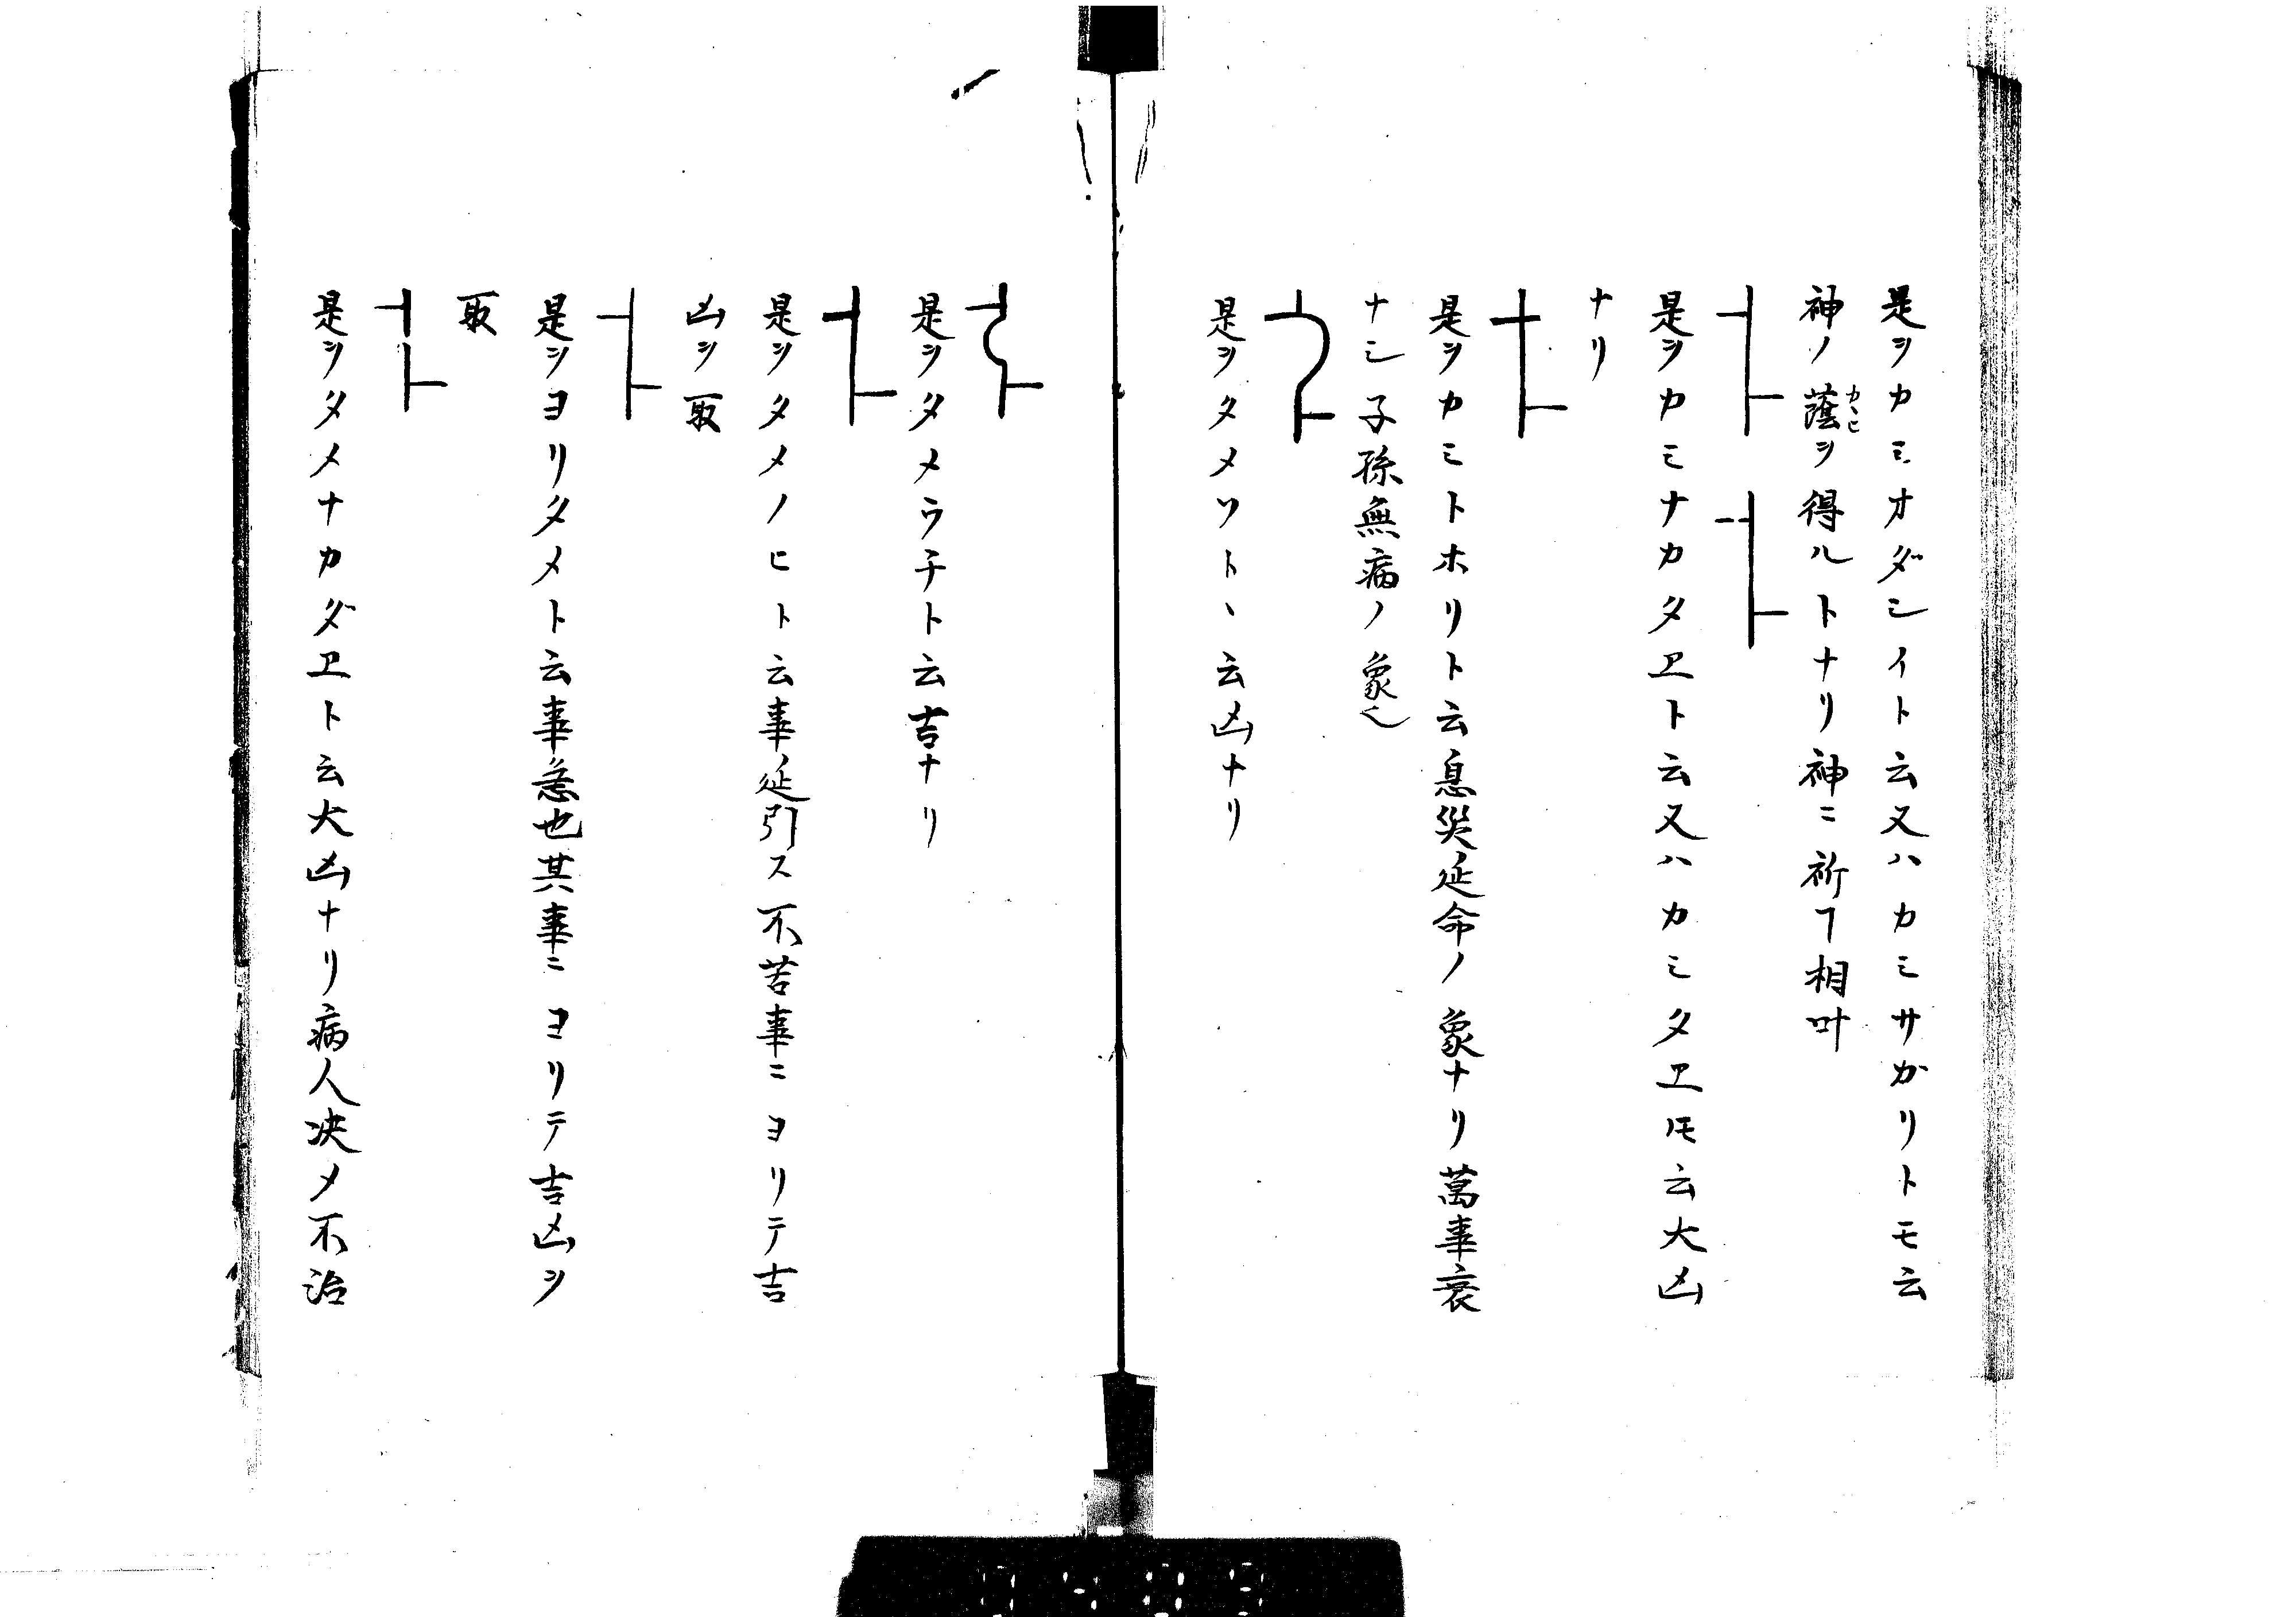 是ヲカミオダシイト云又ハカミサガリトモ云
神ノ蔭ヲ得ルトナリ神ニ祈ヿ相叶
カヽヒ
是ヲカミナカタヱト云又ハカミタヱトモ云大凶
ナリ
是ヲカミトホリト云息災延命ノ象ナリ萬事衰
ナシ子孫無病ノ象也
是ヲタメツトヽ云凶ナリ
是ヲタメウチト云吉ナリ
是ヲタメノヒト云事延引ス不苦事ニヨリテ吉
凶ヲ取
是ヲヨリタメト云事急也其事ニヨリテ吉凶ヲ
取
是ヲタメナカダヱト云大凶ナリ病人决メ不治